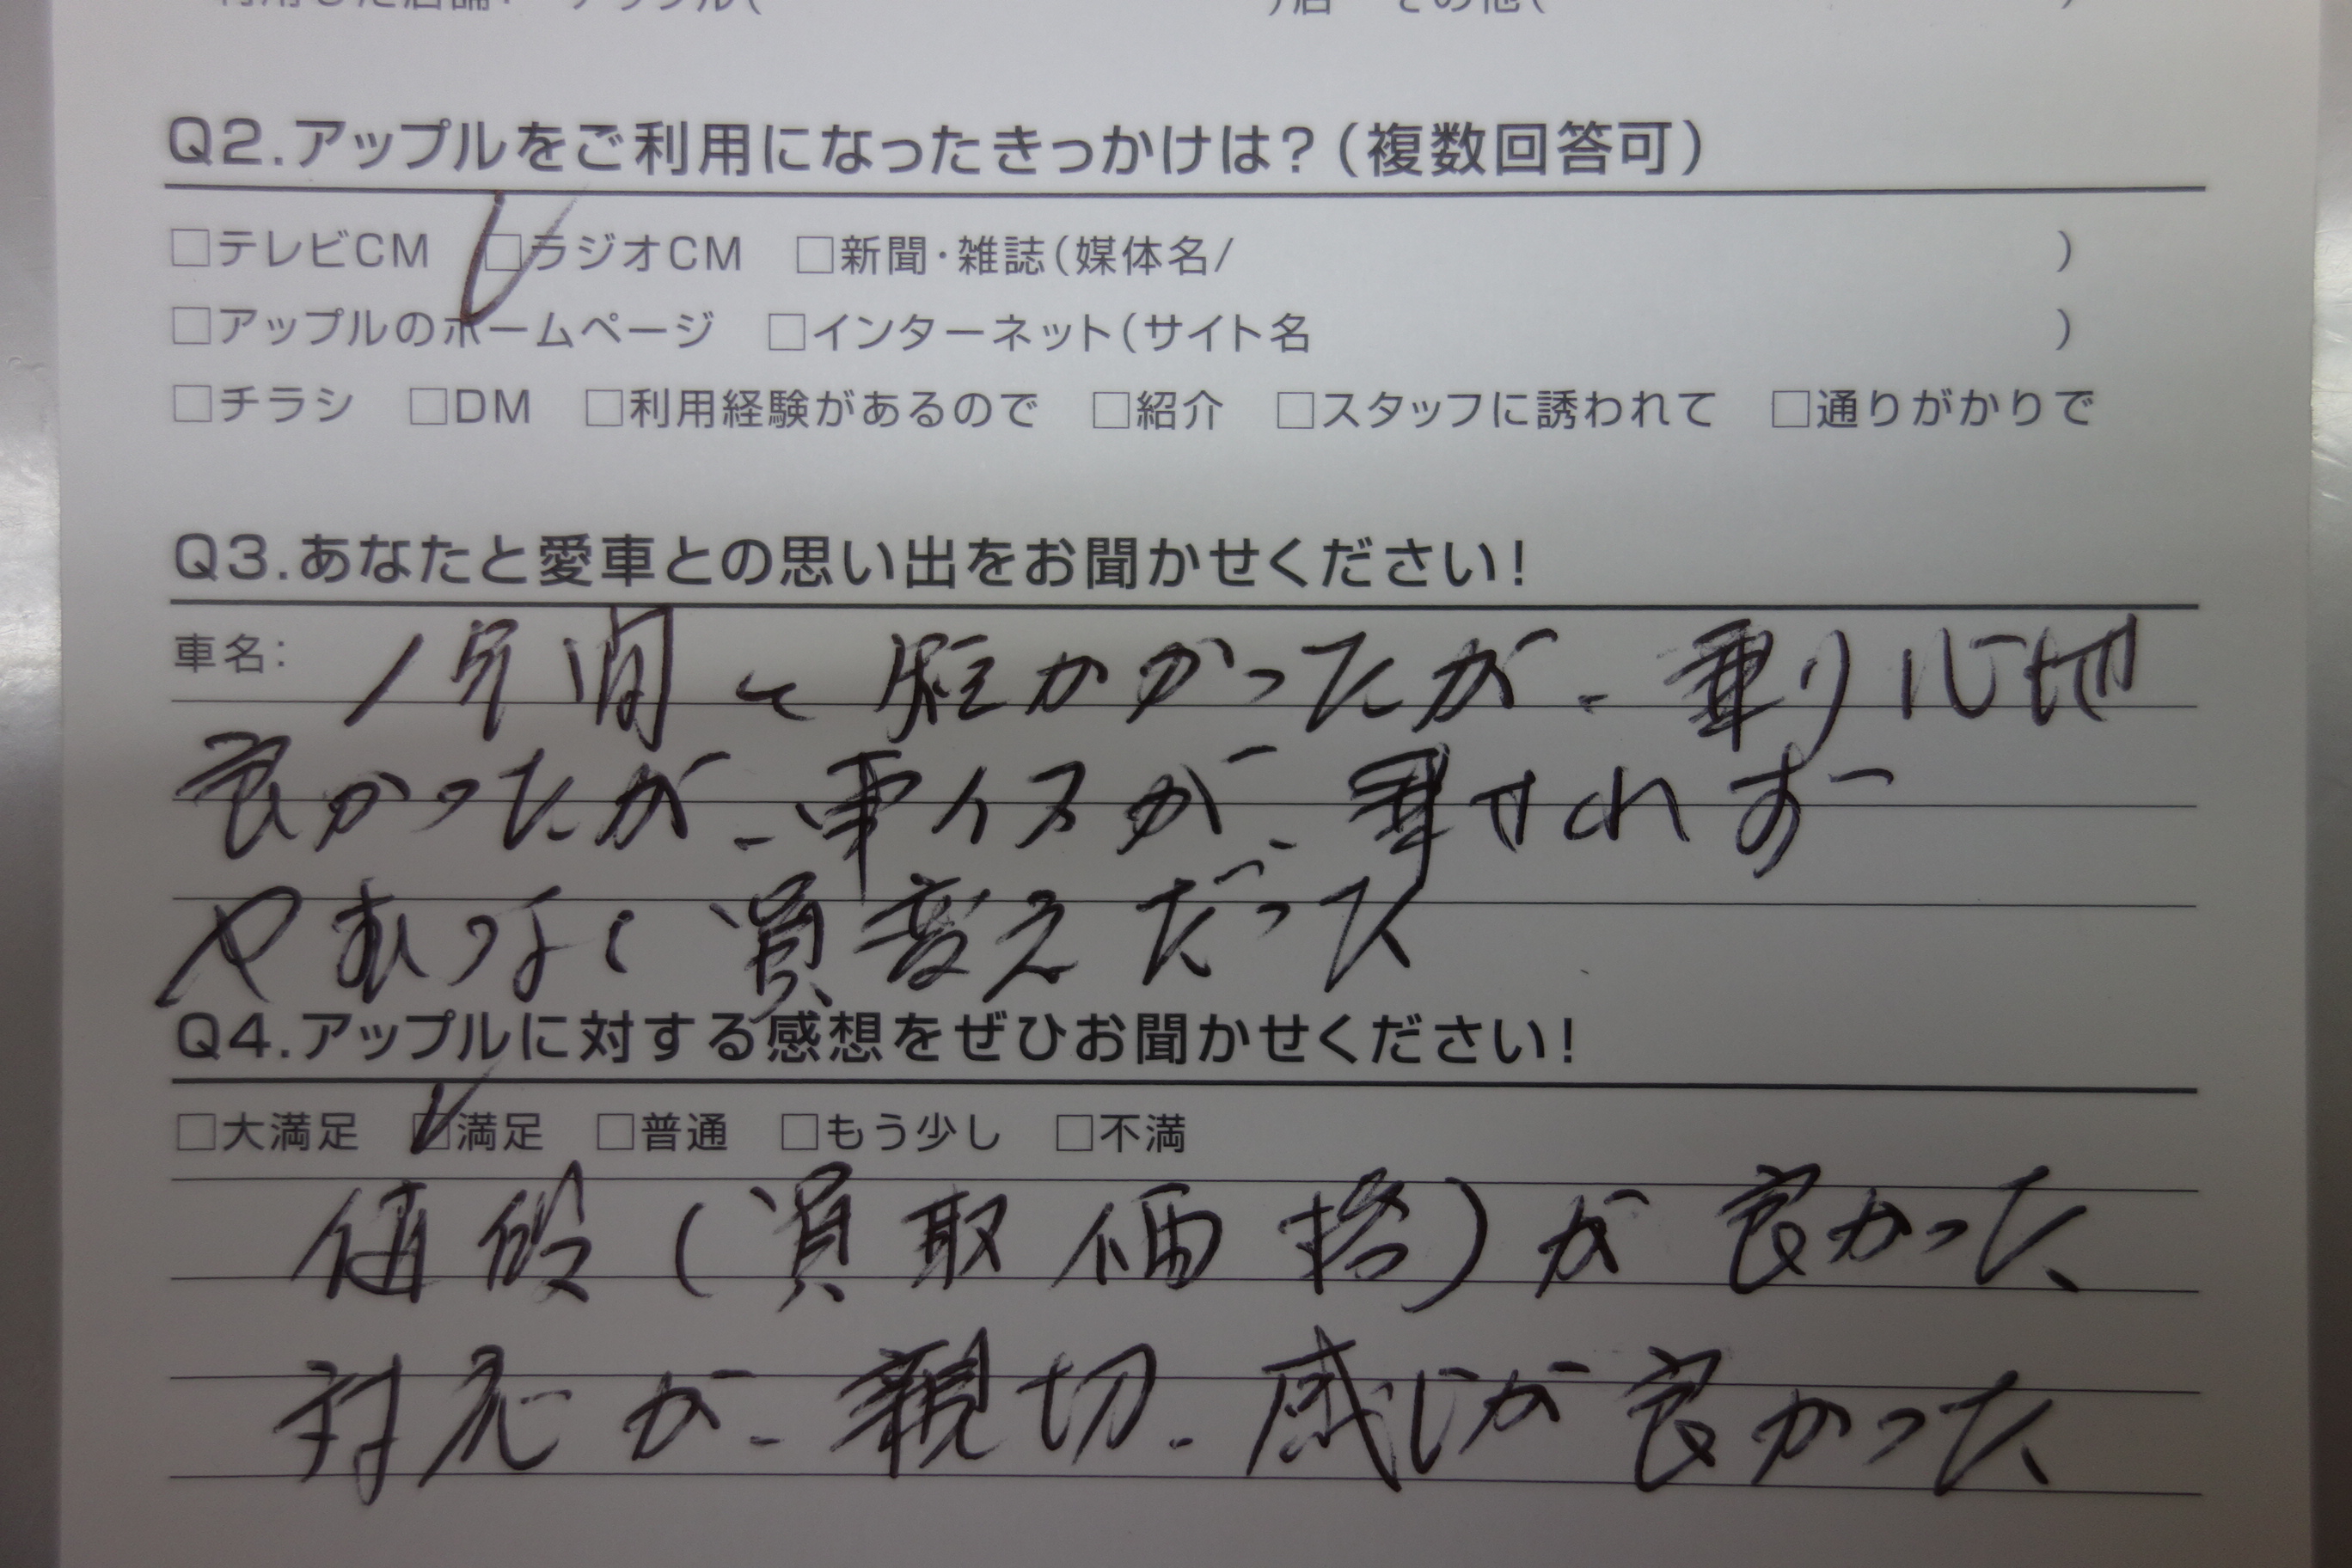 Q2.アップルをご利用になったきっかけは?(複数回答可)
□テレビCM ☑ラジオCM □新聞・雑誌(媒体名/ )
□アップルのホームページ □インターネット(サイト名 )
□チラシ □DM □利用経験があるので □紹介 □スタッフに誘われて □通りがかりで
Q3.あなたと愛車との思い出をお聞かせください!
車名: 1年間と短かかったが、乗り心地
良かったが、車イスが、乗せれず
やむなく買変えだった
Q4.アップルに対する感想をぜひお聞かせください!
□大満足 ☑満足 □普通 □もう少し □不満
値段(買取価格)が良かった
対応が、親切、感じが良かった